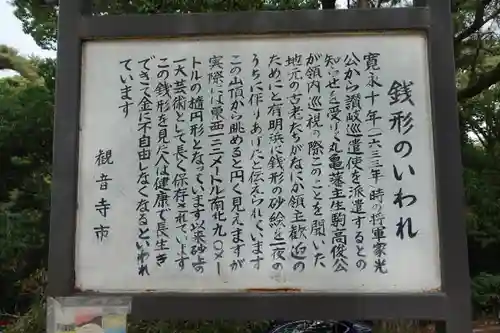 銭形のいわれ
寛永十年（一六三三年）時の将軍家光
公から讃岐巡遣使を派遣するとの
知らせを受けた丸亀藩主生駒高俊公
が領内巡視の際このことを聞いた
地元の古老たちがなにか領主歓迎の
ためにと有明浜に銭形の砂絵を一夜の
うちに作りあげたと伝えられています
この山頂から眺めると円く見えますが
実際には東西一二二メートル南北九〇メー
トルの楕円形となっています以来砂上の
一大芸術として長く保存されています
この銭形を見た人は健康で長生き
できて金に不自由しなくなるといわれ
ています
観音寺市